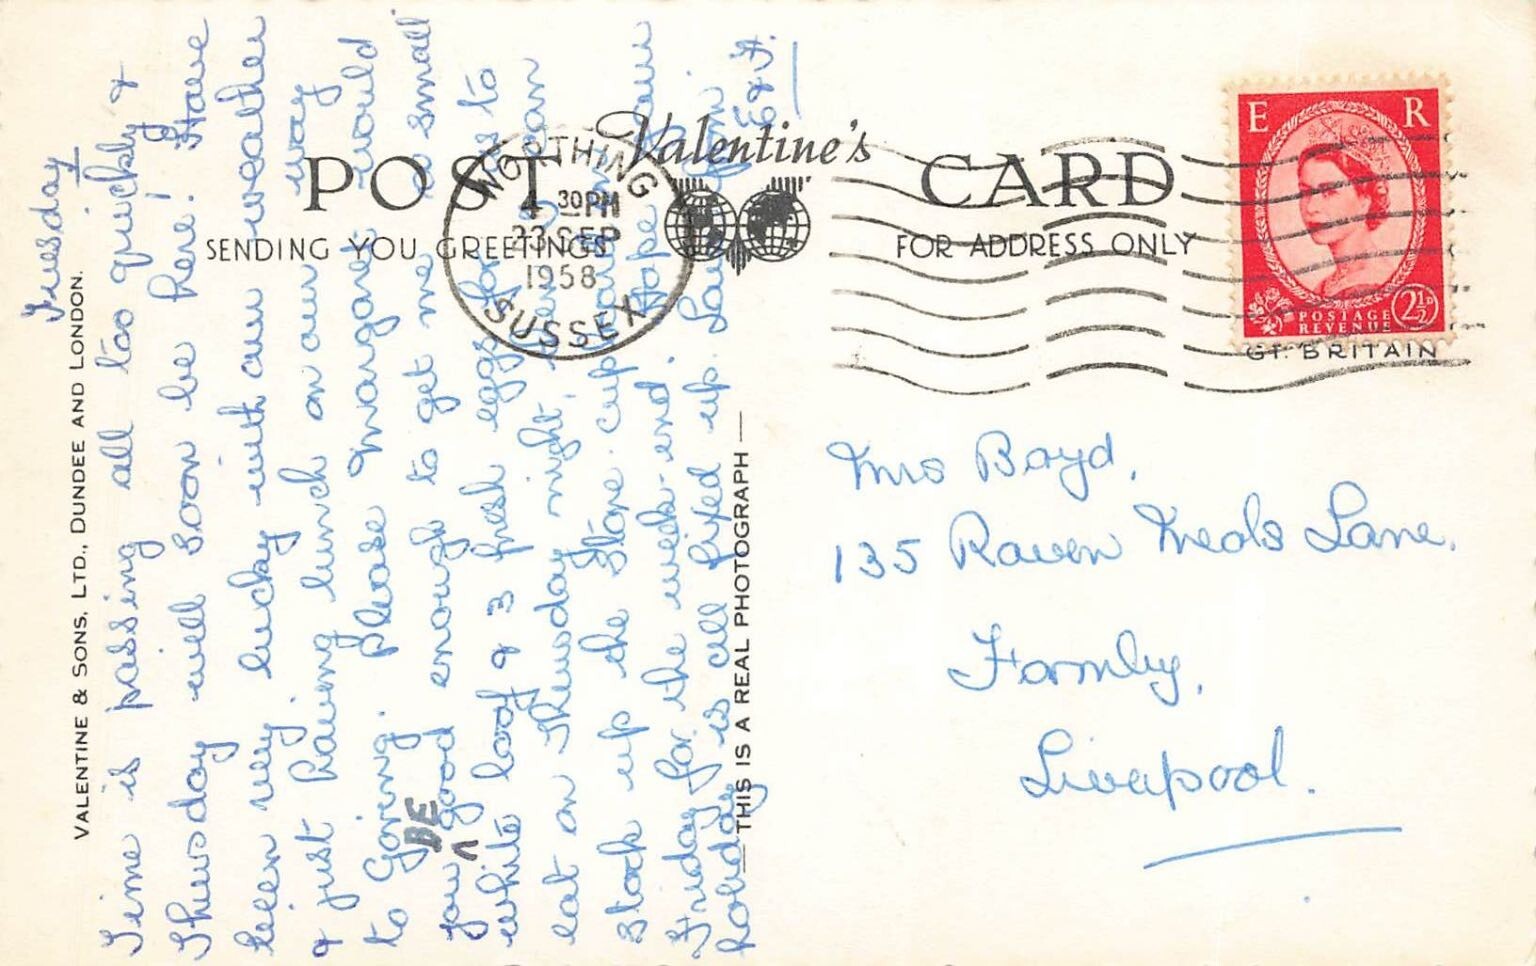 POST CARD
Valentine's
SENDING YOU GREETINGS
FOR ADDRESS ONLY
WORTHING
4 30PM
23 SEP
1958
SUSSEX
E R
POSTAGE
REVENUE
2½D
GT. BRITAIN
VALENTINE & SONS, LTD., DUNDEE AND LONDON.
THIS IS A REAL PHOTOGRAPH
Tuesday
Time is passing all too quickly &
Thursday will soon be here! Have
been very lucky with our weather
& just having lunch on our way
to Goring. Please Margaret would
you BE good enough to get me a small
white loaf & 3 fresh eggs for us to
eat on Thursday night, then I can
stock up the store cupboard on
Friday for the week-end. Hope your
holiday is all fixed up. Love from
E & A.
Mrs Boyd,
135 Raven Meols Lane,
Formby,
Liverpool.